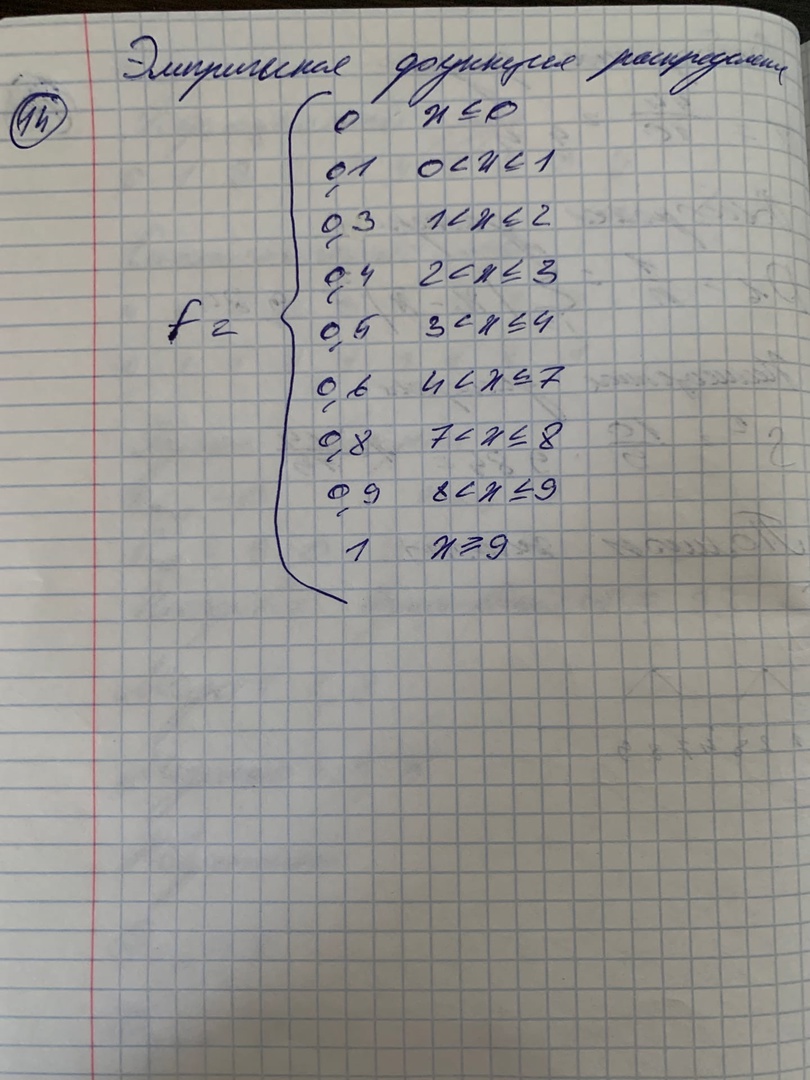 Эмпирическая функция распределения
14
0 x ≤ 0
0,1 0 < x ≤ 1
0,3 1 < x ≤ 2
0,4 2 < x ≤ 3
f = 0,5 3 < x ≤ 4
0,6 4 < x ≤ 7
0,8 7 < x ≤ 8
0,9 8 < x ≤ 9
1 x ≥ 9